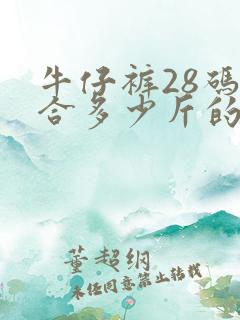 牛仔裤28碼
合多少斤的
董超纲
未经同意禁止转载